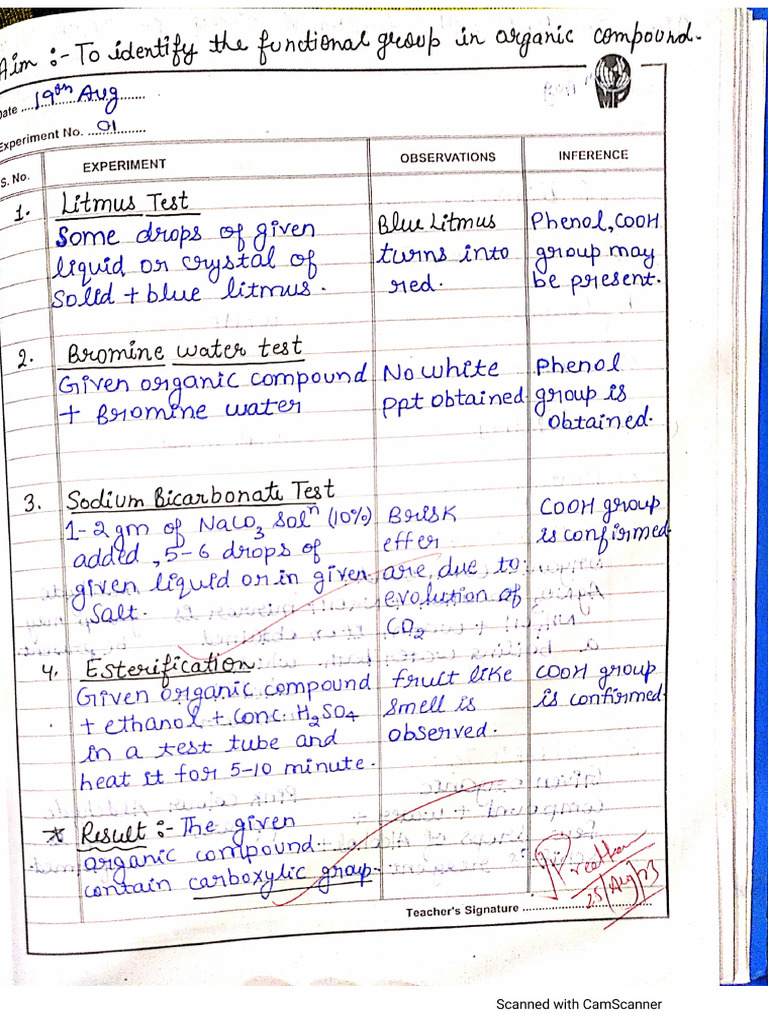 Aim :- To identify the functional group in organic compound.
Date 19th Aug
MP
Experiment No. 01
S. No. EXPERIMENT OBSERVATIONS INFERENCE
1. Litmus Test
Some drops of given
liquid or crystal of
solid + blue litmus.
Blue Litmus
turns into
red.
Phenol, COOH
group may
be present.
2. Bromine water test
Given organic compound
+ Bromine water
No white
ppt obtained
Phenol
group is
obtained.
3. Sodium Bicarbonate Test
1-2 gm of NaCO3 Solⁿ (10%)
added, 5-6 drops of
given liquid or in given
Salt.
Brisk
effer
are, due to
evolution of
CO2
COOH group
is confirmed
4. Esterification:
Given organic compound
+ ethanol + Conc. H2SO4
in a test tube and
heat it for 5-10 minute.
fruit like
smell is
observed.
COOH group
is confirmed
* Result :- The given
organic compound
contain carboxylic group.
25/Aug/23
Teacher's Signature
Scanned with CamScanner